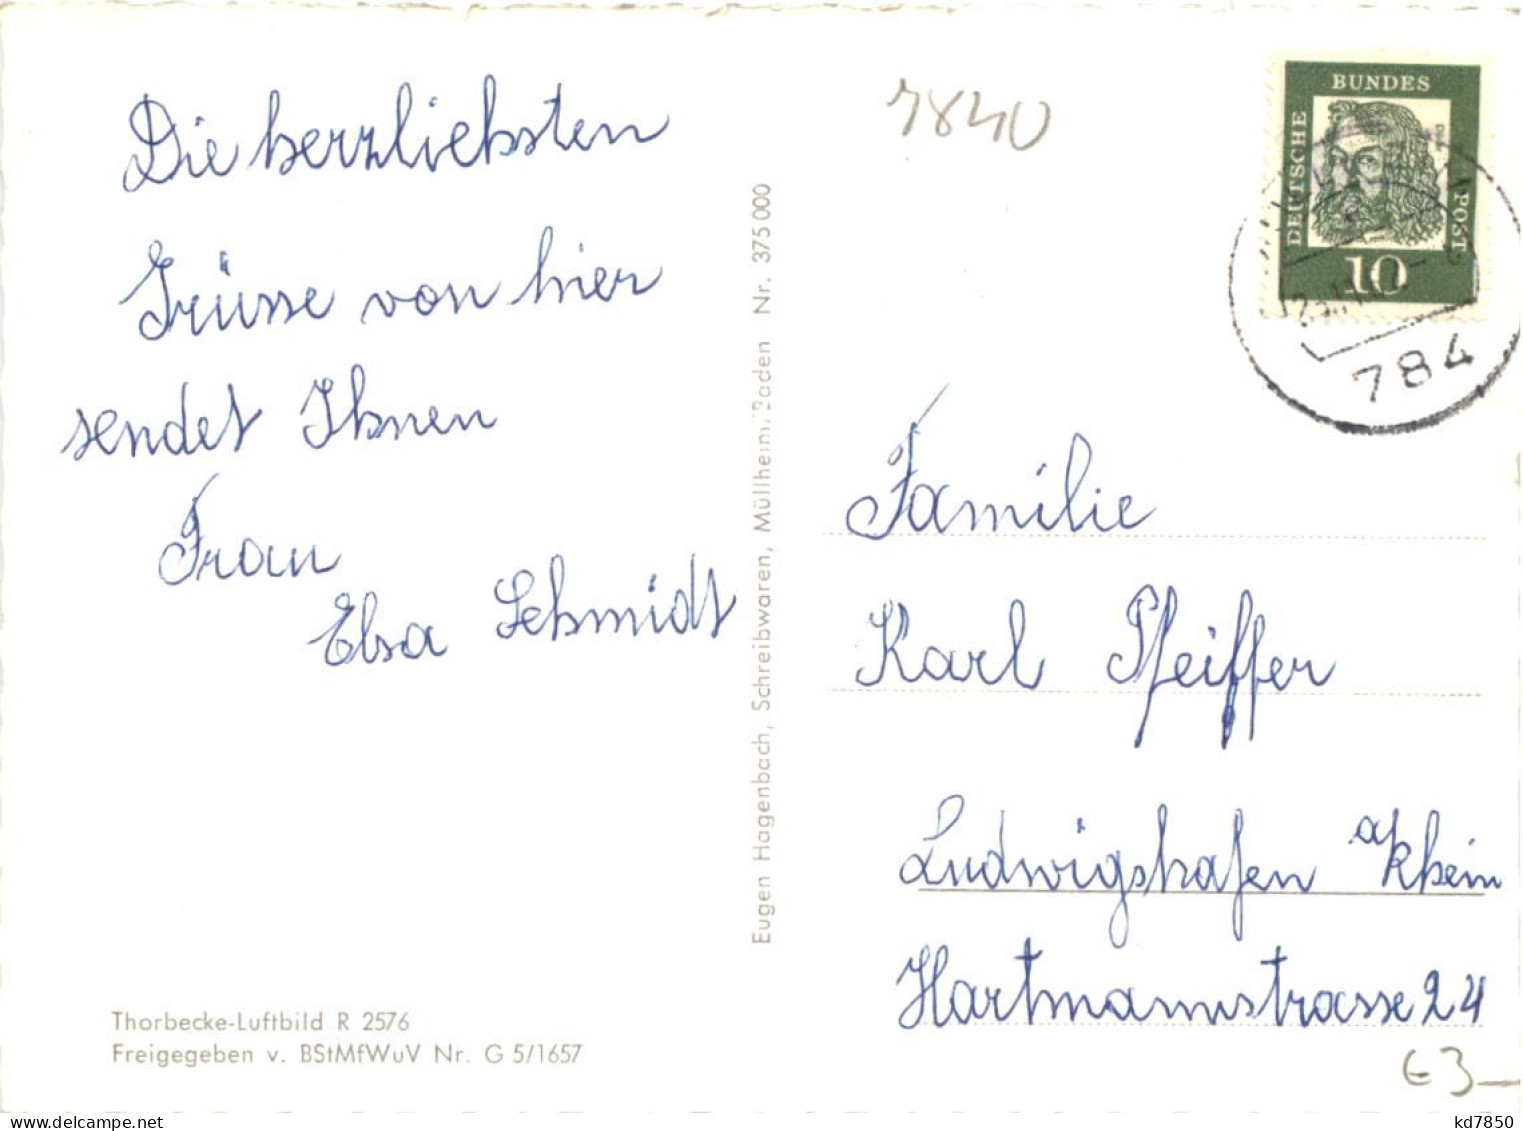 Die herzlichsten
Grüsse von hier
sendet Ihnen
Frau
Elsa Schmidt
Thorbecke-Luftbild R 2576
Freigegeben v. BStMfWuV Nr. G 5/1657
Eugen Hagenbach, Schreibwaren, Müllheim/Baden Nr. 375 000
7840
DEUTSCHE
BUNDES
POST
10
784
Familie
Karl Pfeiffer
Ludwigshafen a/Rhein
Hartmannstrasse 24
€3—
kd7850